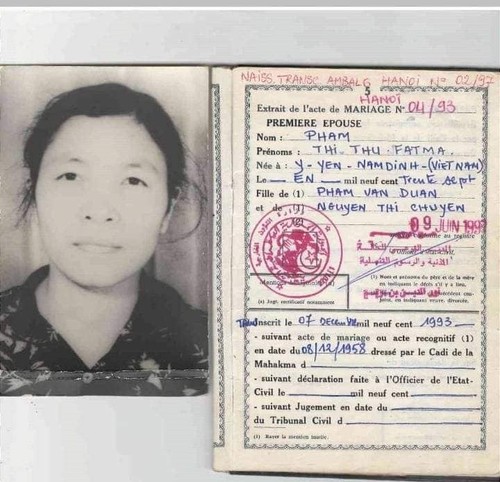 NAISS. TRANSC. AMBALG HANOÏ N° 02/97
5
HANOÏ
Extrait de l'acte de MARIAGE N° 04/93
PREMIERE EPOUSE
Nom : PHAM
Prénoms : THI-THU-FATMA.
Née à : Y-YEN-NAMDINH-(VIETNAM)
Le EN mil neuf cent Trente sept
Fille de (1) PHAM VAN DUAN
et de NGUYEN THI CHUYEN
09 JUIN 1997
(1) Nom et prénoms du père et de la mère
en indiquant
(2) Jugt. rectificatif notamment
Transcrit le 07 Décembre mil neuf cent 1993
- suivant acte de mariage ou acte recognitif (1)
en date du 08/12/1958 dressé par le Cadi de la
Mahakma d
- suivant déclaration faite à l'Officier de l'Etat-
Civil le mil neuf cent
- suivant Jugement en date du
du Tribunal Civil d
(1) Rayer la mention inutile.